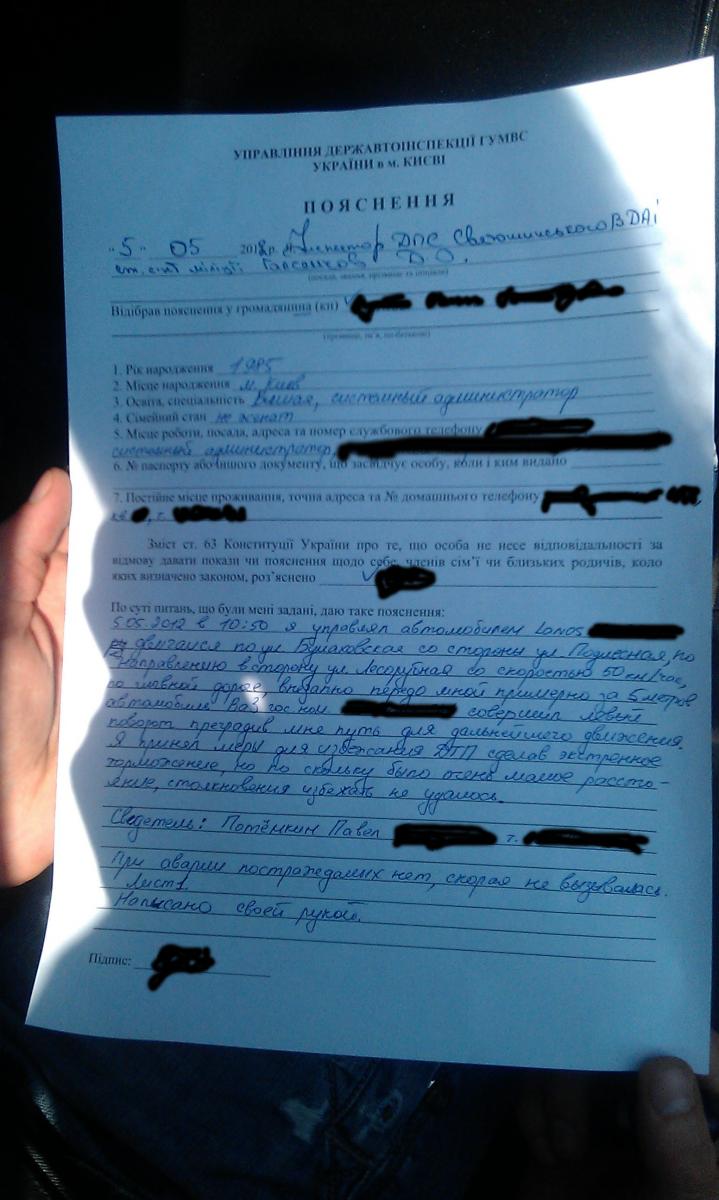 УПРАВЛІННЯ ДЕРЖАВТОІНСПЕКЦІЇ ГУМВС
УКРАЇНИ в м. КИЄВІ
ПОЯСНЕННЯ
"5" 05 2012р. Інспектор ДПС Святошинського ВДАІ
ст. с-нт міліції Д.О.
(посада, звання, прізвище та ініціали)
Відібрав пояснення у громадянина (ки)
(прізвище, ім'я, по-батькові)
1. Рік народження 1985
2. Місце народження м. Київ
3. Освіта, спеціальність Высшая, системный администратор
4. Сімейний стан не женат
5. Місце роботи, посада, адреса та номер службового телефону
системный администратор,
6. № паспорту або іншого документу, що засвідчує особу, коли і ким видано
7. Постійне місце проживання, точна адреса та № домашнього телефону
кв. , т.
Зміст ст. 63 Конституції України про те, що особа не несе відповідальності за
відмову давати покази чи пояснення щодо себе, членів сім'ї чи близьких родичів, коло
яких визначено законом, роз'яснено
По суті питань, що були мені задані, даю таке пояснення:
5.05.2012 в 10:50 я управлял автомобилем Lanos
двигался по ул Булаховская со стороны ул Подлесная, по
направлению в сторону ул Лесорубная со скоростью 50 км/час,
по главной дороге, внезапно передо мной примерно за 5 метров
автомобиль Ваз гос ном совершил левый
поворот преградив мне путь для дальнейшего движения.
Я принял меры для избежания ДТП сделав экстренное
торможение, но по скольку было очень малое рассто-
яние, столкновения избежать не удалось.
Свидетель: Потёмкин Павел т.
При аварии пострадалых нет, скорая не вызывалась.
Лист 1.
Написано своей рукой.
Підпис: